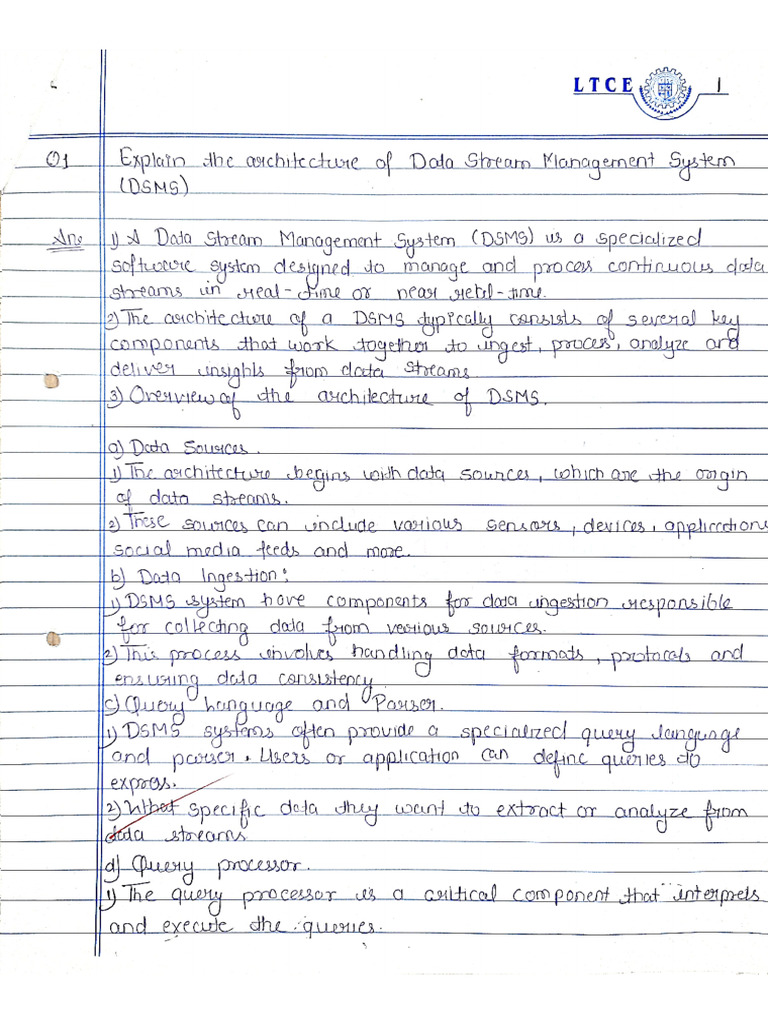 LTCE 1
Q1 Explain the architecture of Data Stream Management System
(DSMS)
Ans 1) A Data Stream Management System (DSMS) is a specialized
software system designed to manage and process continuous data
streams in real-time or near real-time.
2) The architecture of a DSMS typically consists of several key
components that work together to ingest, proces, analyze and
deliver insights from data streams
3) Overview of the architecture of DSMS.
a) Data Sources.
1) The architecture begins with data sources, which are the origin
of data streams.
2) These sources can include various sensors, devices, applications
social media feeds and more.
b) Data Ingestion:
1) DSMS system have components for data ingestion responsible
for collecting data from various sources.
2) This process involves handling data formats, protocals and
ensuring data consistency
c) Query Language and Parser.
1) DSMS systems often provide a specialized query language
and parser. Users or application can define queries to
express.
2) What specific data they want to extract or analyze from
data streams
d) Query processor.
1) The query processor is a critical component that interprets
and execute the queries.